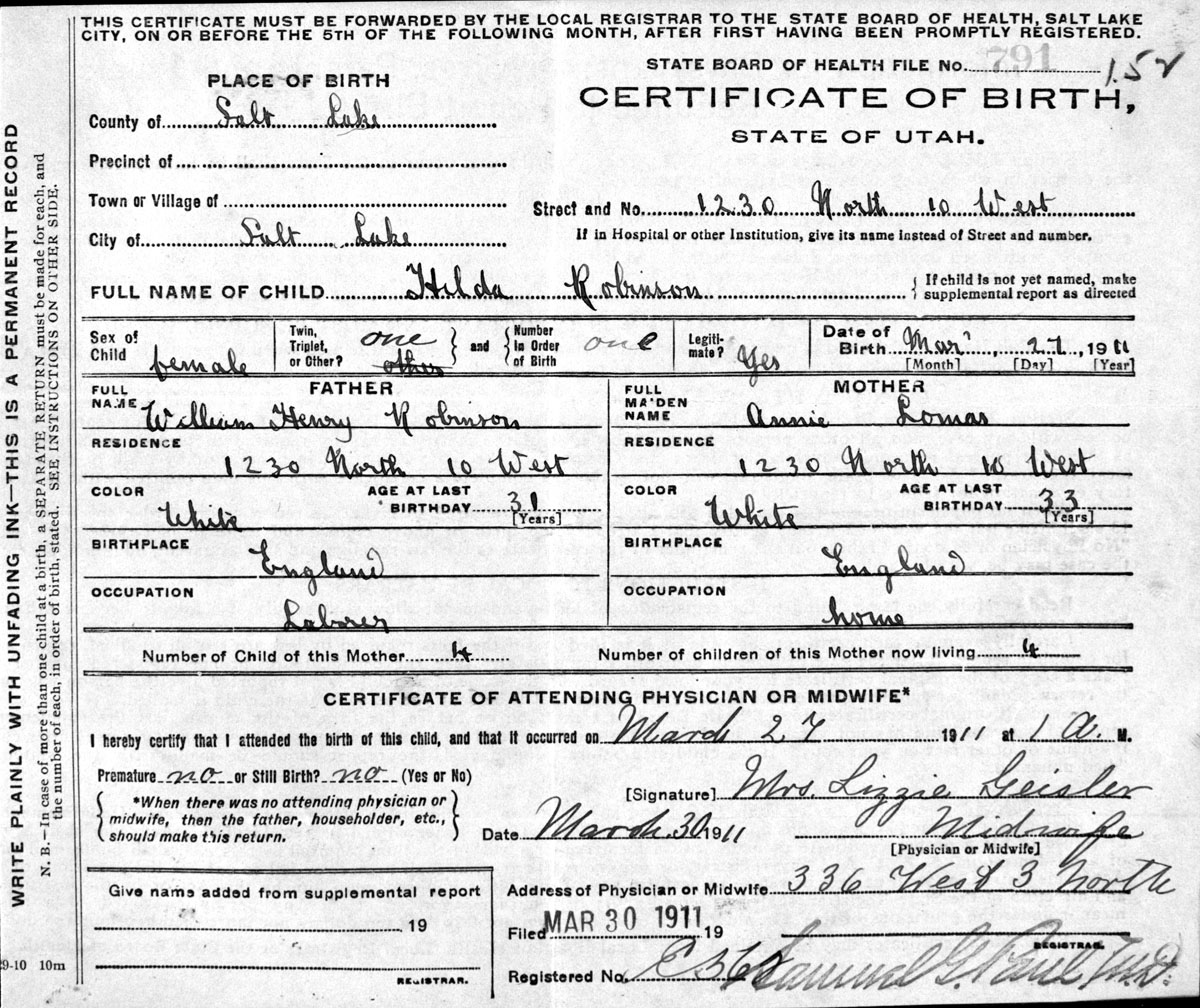 THIS CERTIFICATE MUST BE FORWARDED BY THE LOCAL REGISTRAR TO THE STATE BOARD OF HEALTH, SALT LAKE
CITY, ON OR BEFORE THE 5TH OF THE FOLLOWING MONTH, AFTER FIRST HAVING BEEN PROMPTLY REGISTERED.
WRITE PLAINLY WITH UNFADING INK—THIS IS A PERMANENT RECORD
N. B.—In case of more than one child at a birth, a SEPARATE RETURN must be made for each, and
the number of each, in order of birth, stated. SEE INSTRUCTIONS ON OTHER SIDE.
STATE BOARD OF HEALTH FILE No. 791 152
PLACE OF BIRTH
CERTIFICATE OF BIRTH,
STATE OF UTAH.
County of Salt Lake
Precinct of
Town or Village of
Street and No. 1230 North 10 West
City of Salt Lake
If in Hospital or other Institution, give its name instead of Street and number.
FULL NAME OF CHILD Hilda Robinson
If child is not yet named, make
supplemental report as directed
Sex of Child female
Twin, Triplet, or Other? one
and Number in Order of Birth one
Legiti-mate? Yes
Date of Birth Mar 27, 1911
[Month] [Day] [Year]
FATHER
FULL NAME William Henry Robinson
RESIDENCE
1230 North 10 West
COLOR White
AGE AT LAST BIRTHDAY 31
[Years]
BIRTHPLACE
England
OCCUPATION
Laborer
MOTHER
FULL MA'DEN NAME Annie Lomas
RESIDENCE
1230 North 10 West
COLOR White
AGE AT LAST BIRTHDAY 33
[Years]
BIRTHPLACE
England
OCCUPATION
home
Number of Child of this Mother 4
Number of children of this Mother now living 4
CERTIFICATE OF ATTENDING PHYSICIAN OR MIDWIFE*
I hereby certify that I attended the birth of this child, and that it occurred on March 27 1911 at 1 A. M.
Premature no or Still Birth? no (Yes or No)
*When there was no attending physician or
midwife, then the father, householder, etc.,
should make this return.
[Signature] Mrs. Lizzie Geisler
Date March 30 1911
Midwife
[Physician or Midwife]
Give name added from supplemental report
19
REGISTRAR.
Address of Physician or Midwife 336 West 3 North
Filed MAR 30 1911 19
REGISTRAR.
Registered No. Samuel G. Paul M.D.
9-10 10m